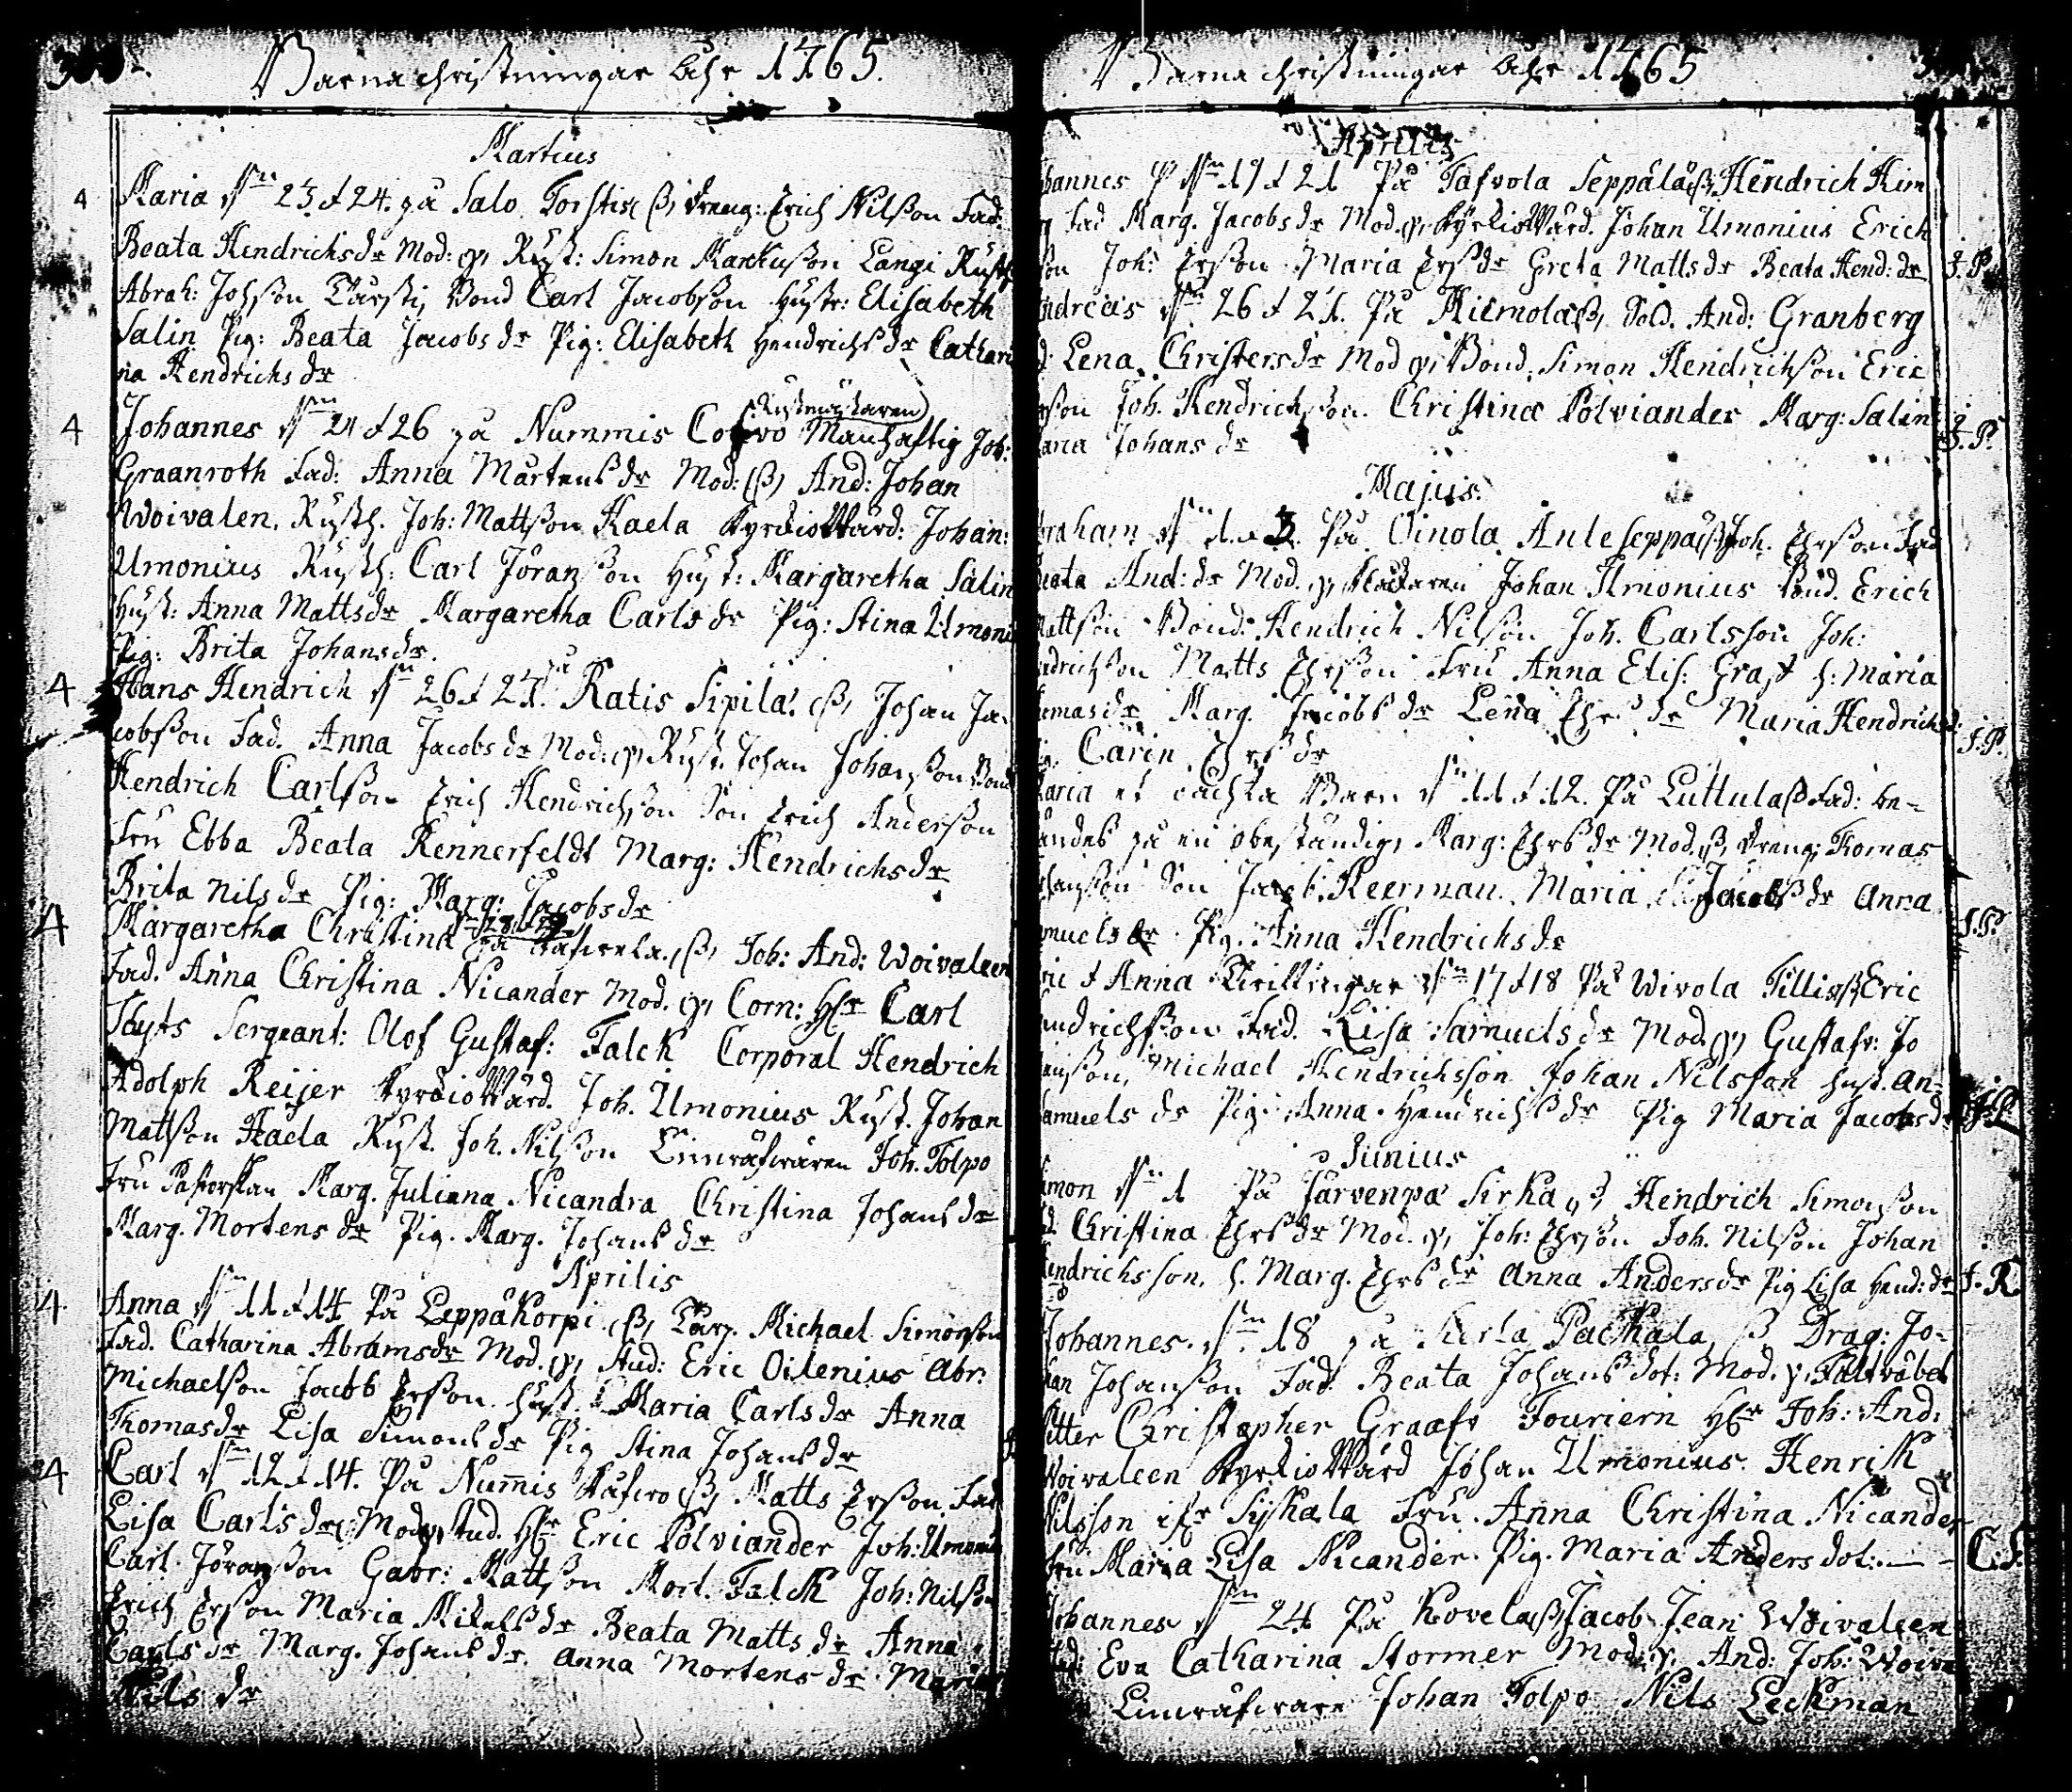 Barna christningar åhr 1765.
Martius
4 Maria 23 d 24. på Salo Torstis (ß, dreng: Erich Nilßon Fad.
Beata Hendrichs dr Mod: Rust: Simon Markußon Langi Rusth
Abrah: Johßon Bond Carl Jacobßon Hustr: Elisabeth
Salin Pig: Beata Jacobs dr Pig: Elisabeth Hendrichs dr Cathari
na Hendrichs dr
Rustmästaren
4 Johannes 24 d 26 på Nummis Manhaftig Joh:
Graanroth Fad: Anna Mårtens dr Mod: (ß, And: Johan
Woivalen. Rusth. Joh: Mattßon Kaela Kyrkiowärd: Johan:
Umonius Rusth: Carl Jöranßon Hust: Margaretha Salin
Hust: Anna Matts dr Margaretha Carls dr Pig: Stina Umoni
Pig: Brita Johans dr.
4 Hans Hendrich 26 d 27. på Ratis Sipilä. (ß, Johan Ja-
cobßon Fad. Anna Jacobs dr Mod: Rust. Johan Johanßon Bond
Hendrich Carlßon Erich Hendrichßon Son Erich Anderßon
Fru Ebba Beata Rennerfeldt Marg: Hendrichs dr
Brita Nils dr Pig: Marg: Jacobs dr
4 Margaretha Christina på (ß, Joh: And: Woivaleen
Fad. Anna Christina Nicander Mod. Corn: Hr Carl
Sergeant: Olof Gustaf: Falck Corporal Hendrich
Adolph Reijer Kyrkiowärd. Joh. Umonius Rust. Johan
Mattßon Kaela Rust. Joh. Nilßon Linwäfwaren Joh. Tolpo
Fru Pastorskan Marg. Juliana Nicandra Christina Johans dr
Marg. Mortens dr Pig. Marg. Johans dr
Aprilis
4 Anna 11 d 14 På Leppäkorpi (ß, Michael Simonßon
Fad. Catharina Abrams dr Mod. Stud: Eric Oilenius Abr:
Michaelßon Jacob Erßon hust. Maria Carls dr Anna
Thomas dr Lisa Simons dr Pig Stina Johans dr
4 Carl 12 d 14. På Numis (ß, Matts Erßon Fad
Lisa Carls dr Mod. Stud. Hr Eric Polviander Joh: Umonius
Carl Jöranßon Gabr: Mattßon Mort. Falck Joh: Nilßon
Erich Erßon Maria Mikels dr Beata Matts dr Anna
Carls dr Marg. Johans dr. Anna Mortens dr Maria
Nils dr
Barna christningar åhr 1765
Aprilis
hannes 19 d 21 På Tafvola Seppälä ß, Hendrich Him
Fad Marg. Jacobs dr Mod. Kyrkiowärd. Johan Umonius Erich
son Joh: Erßon Maria Ers dr Greta Matts dr Beata Hend: dr J. P.
ndreas 26 d 21. På Riemola ß, Sold. And: Granberg
Lena Christers dr Mod Bond. Simon Hendrichßon Eric
ßon Joh. Hendrichßon. Christina Polviander Marg: Salin
aria Johans dr J. P.
Majus.
raham På Oinola Anleseppä ß, Joh. Ehrßon Fad
eata And: dr Mod. Klåckaren Johan Ilmonius Bond. Erich
attßon Bond: Hendrich Nilßon Joh. Carlsson Joh:
ndrichßon Matts Ehrßon Fru Anna Elis: Graf h: Maria
omas dr Marg. Jacobs dr Lena Ehrs dr Maria Hendrichs d:
Carin Ehrs dr J. P.
aria et oächta Barn 11 d 12. På Luttula ß Fad: be-
ändes på en obeständig, Marg: Ehrs dr Mod. ß, dreng: Thomas
hanßon Son Jacob Heerman. Maria Jacobs dr Anna
muels dr Pig. Anna Hendrichs dr J. P.
ric d Anna Twillingar 17 d 18 På Wivola Tillis ß, Eric
endrichßon Fad. Lisa Samuels dr Mod. Gustafv: Jo
anßon, Michael Hendrichsson Johan Nilsson hust. An-
Samuels dr Pig. Anna Hendrichs dr Pig Maria Jacobs dr
Junius
imon 1 På Järvenpä Sirka, ß Hendrich Simonßon
Christina Ehrs dr Mod. Joh: Ehrßon Joh. Nilßon Johan
endrichsson. h. Marg. Ehrs dr Anna Anders dr Pig Lisa Hend: dr J. R.
Johannes. 18 på Kierla Packala ß Drag: Jo-
han Johanßon Fad. Beata Johans dot: Mod. Fältväbel
Petter Christopher Graafv Fouriern Hr Joh: And:
Woivaleen Kyrkiowärd Johan Umonius. Henrik
Nilsson ifr Syskala Fru. Anna Christina Nicander
Fru Maria Lisa Nicander. Pig. Maria Anders dot: C. S.
Johannes 24 På Kovela ß, Jacob Jean Woivaleen
Fad: Eva Catharina Stormer Mod. And: Joh: Woiva
Linwäfvare Johan Tolpo Nils Leckman